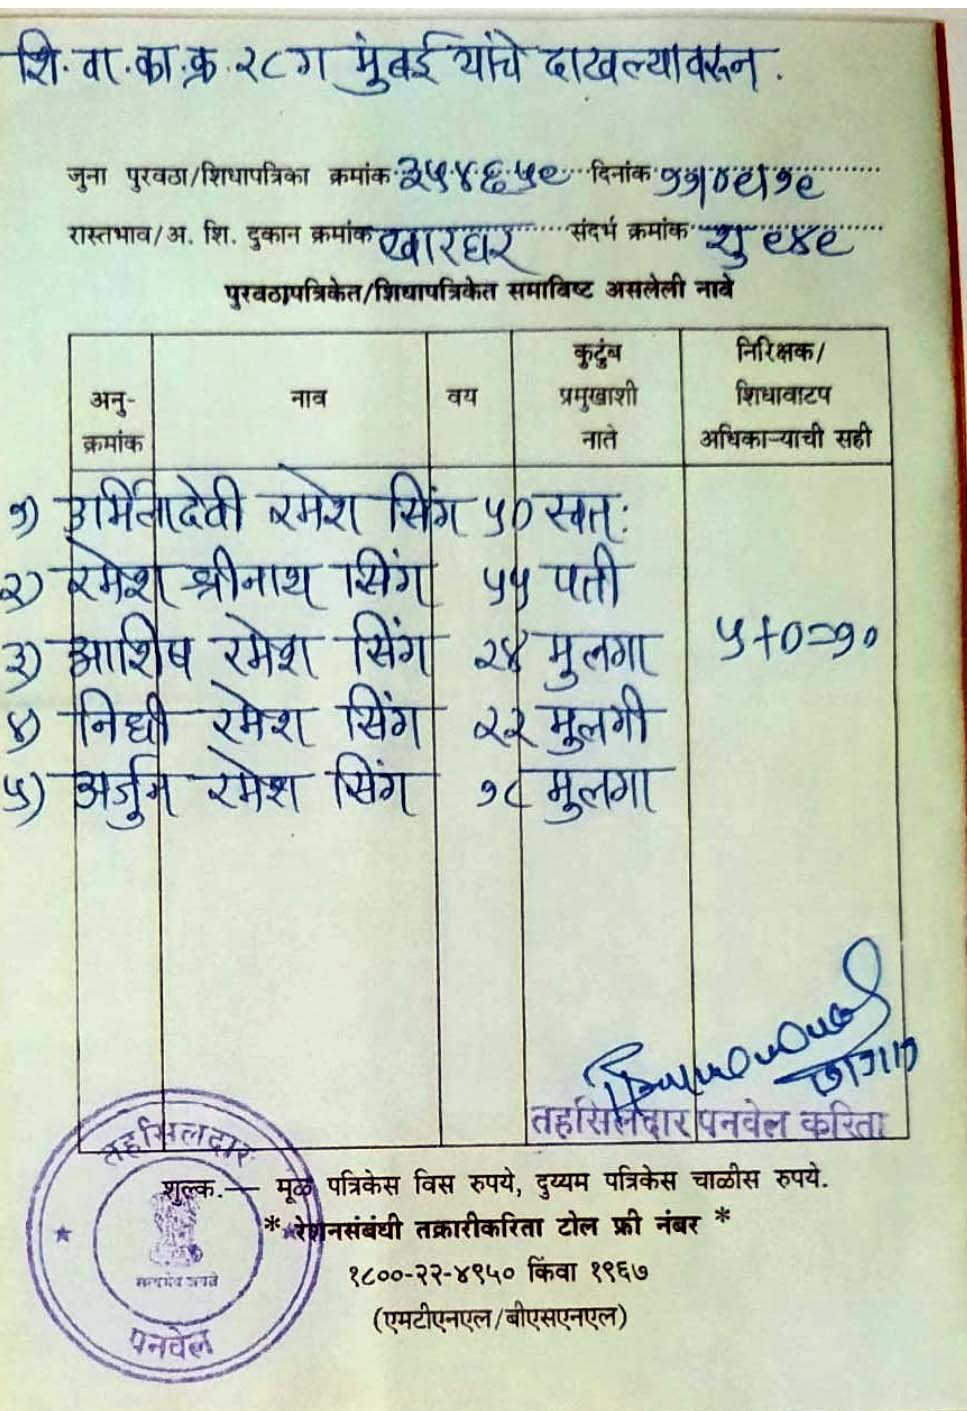 शि. वा. का. क्र. २८ ग मुंबई यांचे दाखल्यावरून.
जुना पुरवठा/शिधापत्रिका क्रमांक ३५४६५९ दिनांक ११०९१९
रास्तभाव/अ. शि. दुकान क्रमांक खारघर संदर्भ क्रमांक शु ९४९
पुरवठापत्रिकेत/शिधापत्रिकेत समाविष्ट असलेली नावे
अनु-क्रमांक नाव वय कुटुंब प्रमुखाशी नाते निरिक्षक/शिधावाटप अधिकाऱ्याची सही
१) उर्मिलादेवी रमेश सिंग ५० स्वतः
२) रमेश श्रीनाथ सिंग ५५ पती
३) आशिष रमेश सिंग २४ मुलगा ५+०=१०
४) निधी रमेश सिंग २२ मुलगी
५) अर्जुन रमेश सिंग १८ मुलगा
तहसिलदार पनवेल करिता
तहसिलदार
शुल्क.— मूळ पत्रिकेस विस रुपये, दुय्यम पत्रिकेस चाळीस रुपये.
* रेशनसंबंधी तक्रारीकरिता टोल फ्री नंबर *
सत्यमेव जयते
१८००-२२-४९५० किंवा १९६७
(एमटीएनएल/बीएसएनएल)
पनवेल